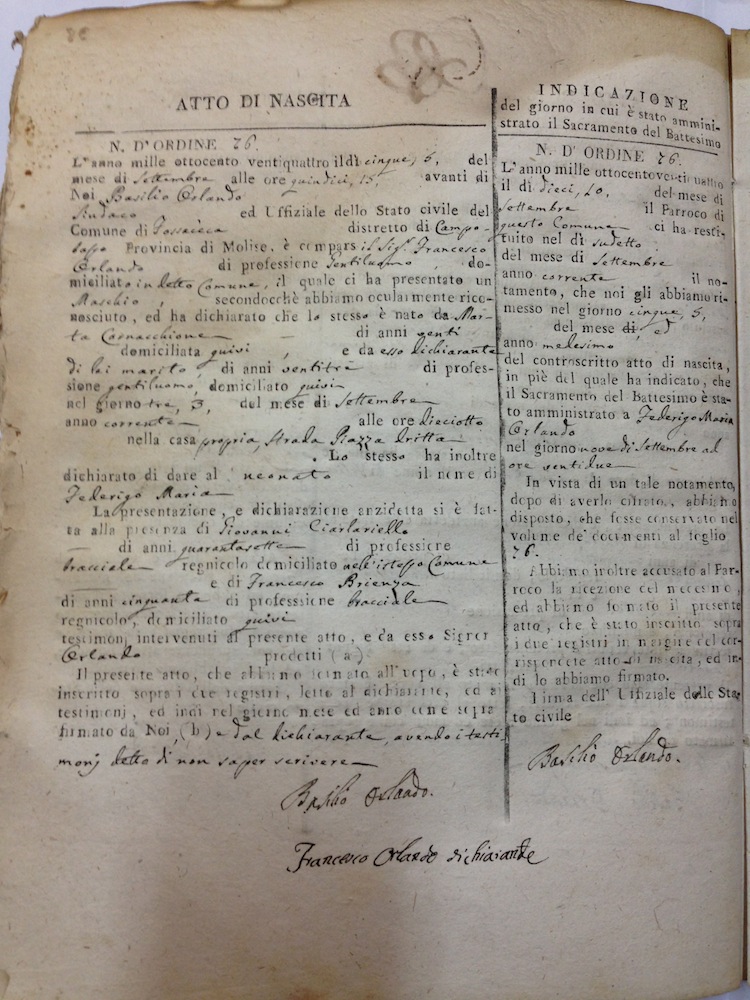 ATTO DI NASCITA
N. D'ORDINE 76.
L'anno mille ottocento ventiquattro il di cinque, 5, del
mese di Settembre alle ore quindici, 15, avanti di
Noi Basilio Orlando
Sindaco ed Uffiziale dello Stato civile del
Comune di Fossaceca distretto di Campo-
basso Provincia di Molise, è comparso il Sig. Francesco
Orlando di professione Gentiluomo, do-
miciliato in detto Comune, il quale ci ha presentato un
Maschio, secondocchè abbiamo ocularmente rico-
nosciuto, ed ha dichiarato che lo stesso è nato da Mar-
ta Cornacchione di anni venti
domiciliata quivi, e da esso dichiarante
di lei marito di anni ventitre di profes-
sione gentiluomo, domiciliato quivi
nel giorno tre, 3, del mese di Settembre
anno corrente alle ore dieciotto
nella casa propria, Strada Piazza Dritta
. Lo stesso ha inoltre
dichiarato di dare al neonato il nome di
Federigo Maria
La presentazione, e dichiarazione anzidetta si è fat-
ta alla presenza di Giovanni Ciarlariello
di anni quarantasette di professione
bracciale regnicolo domiciliato nell'istesso Comune
e di Francesco Brienza
di anni cinquanta di professsione bracciale
regnicolo, domiciliato quivi
testimonj intervenuti al presente atto, e da esso Signor
Orlando prodotti (a)
Il presente atto, che abbiamo formato all'uopo, è stato
inscritto sopra i due registri, letto al dichiarante, ed ai
testimonj, ed indi nel giorno mese ed anno come sopra
firmato da Noi, (b) e dal dichiarante, avendo i testi
monj detto di non saper scrivere
Basilio Orlando.
Francesco Orlando dichiarante
INDICAZIONE
del giorno in cui è stato ammini-
strato il Sacramento del Battesimo
N. D' ORDINE 76.
L'anno mille ottocentoventiquattro
il di dieci, 10, del mese di
Settembre il Parroco di
questo Comune ci ha resti-
tuito nel di sudetto
del mese di Settembre
anno corrente il no-
tamento, che noi gli abbiamo ri-
messo nel giorno cinque, 5,
del mese di, ed
anno medesimo
del controscritto atto di nascita,
in piè del quale ha indicato, che
il Sacramento del Battesimo è sta-
to amministrato a Federigo Maria
Orlando
nel giorno nove di Settembre ad
ore ventidue
In vista di un tale notamento,
dopo di averlo cifrato, abbiamo
disposto, che fosse conservato nel
volume de' documenti al foglio
76.
Abbiamo inoltre accusato al Par-
roco la ricezione del medesimo,
ed abbiamo formato il presente
atto, che è stato inscritto sopra
i due registri in margine del cor-
rispondente atto di nascita, ed in-
di lo abbiamo firmato.
Firma dell' Uffiziale dello Sta-
to civile
Basilio Orlando.